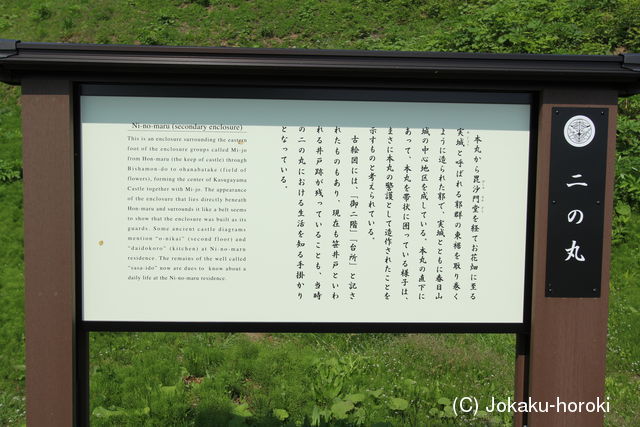 Ni-no-maru (secondary enclosure)
This is an enclosure surrounding the eastern
foot of the enclosure groups called Mi-jo
from Hon-maru (the keep of castle) through
Bishamon-do to ohanabatake (field of
flowers), forming the center of Kasugayama
Castle together with Mi-jo. The appearance
of the enclosure that lies directly beneath
Hon-maru and surrounds it like a belt seems
to show that the enclosure was built as its
guards. Some ancient castle diagrams
mention "o-nikai" (second floor) and
"daidokoro" (kitchen) at Ni-no-maru
residence. The remains of the well called
"sasa-ido" now are dues to know about a
daily life at the Ni-no-maru residence.
本丸から毘沙門堂を経てお花畑に至る
実城と呼ばれる郭群の東裾を取り巻く
ように造られた郭で、実城とともに春日山
城の中心地区を成している。本丸の直下に
あって、本丸を帯状に囲っている様子は、
まさに本丸の警護として造作されたことを
示すものと考えられている。
古絵図には、「御二階」「台所」と記さ
れたものもあり、現在も笹井戸といわ
れる井戸跡が残っていることも、当時
の二の丸における生活を知る手掛かり
となっている。
二の丸
(C) Jokaku-horoki